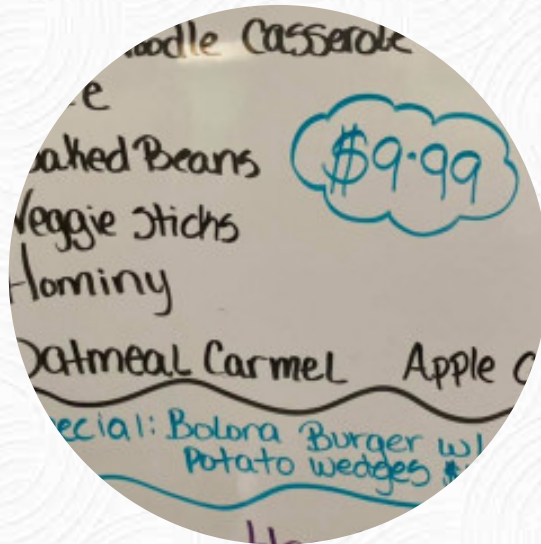 oodle Casserole
e
aked Beans
$9.99
Veggie Sticks
Hominy
Oatmeal Carmel Apple C
ecial: Bolora Burger w/
Potato wedges $
Ho